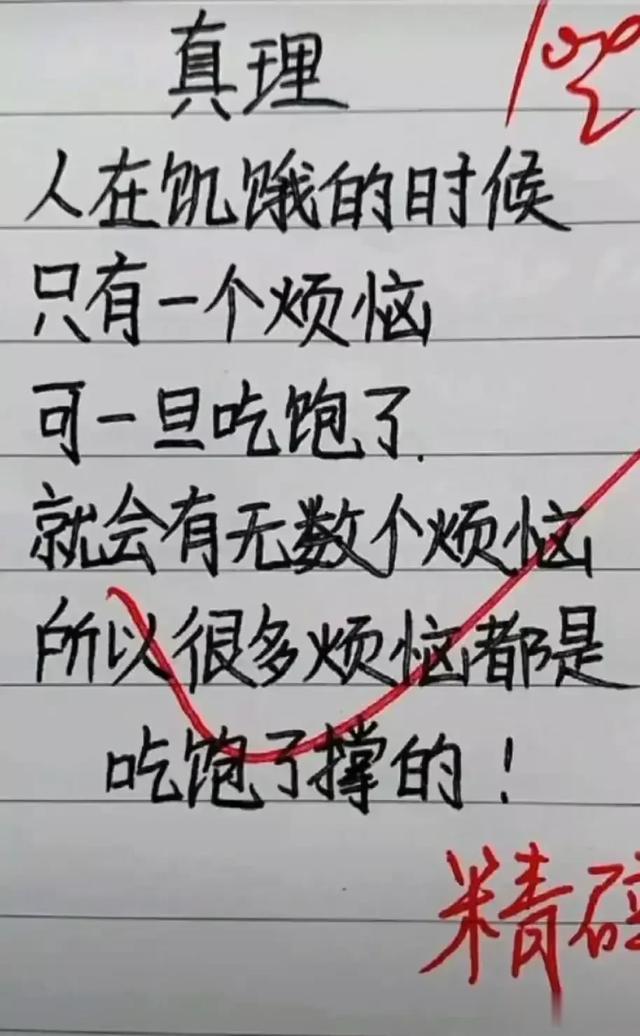 真理
人在饥饿的时候
只有一个烦恼
可一旦吃饱了.
就会有无数个烦恼
所以很多烦恼都是
吃饱了撑的！
精